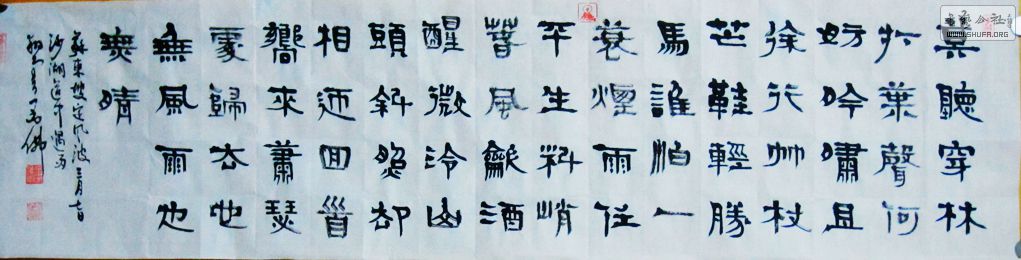 莫聽穿林
打葉聲何
妨吟嘯且
徐行竹杖
芒鞋輕勝
馬誰怕一
蓑煙雨任
平生料峭
春風歠酒
醒微冷山
頭斜照却
相迎回首
嚮來蕭瑟
處歸去也
無風雨也
無晴
蘇東坡定風波三月七日
沙湖道中遇雨
公社
WWW.SHUFA.ORG